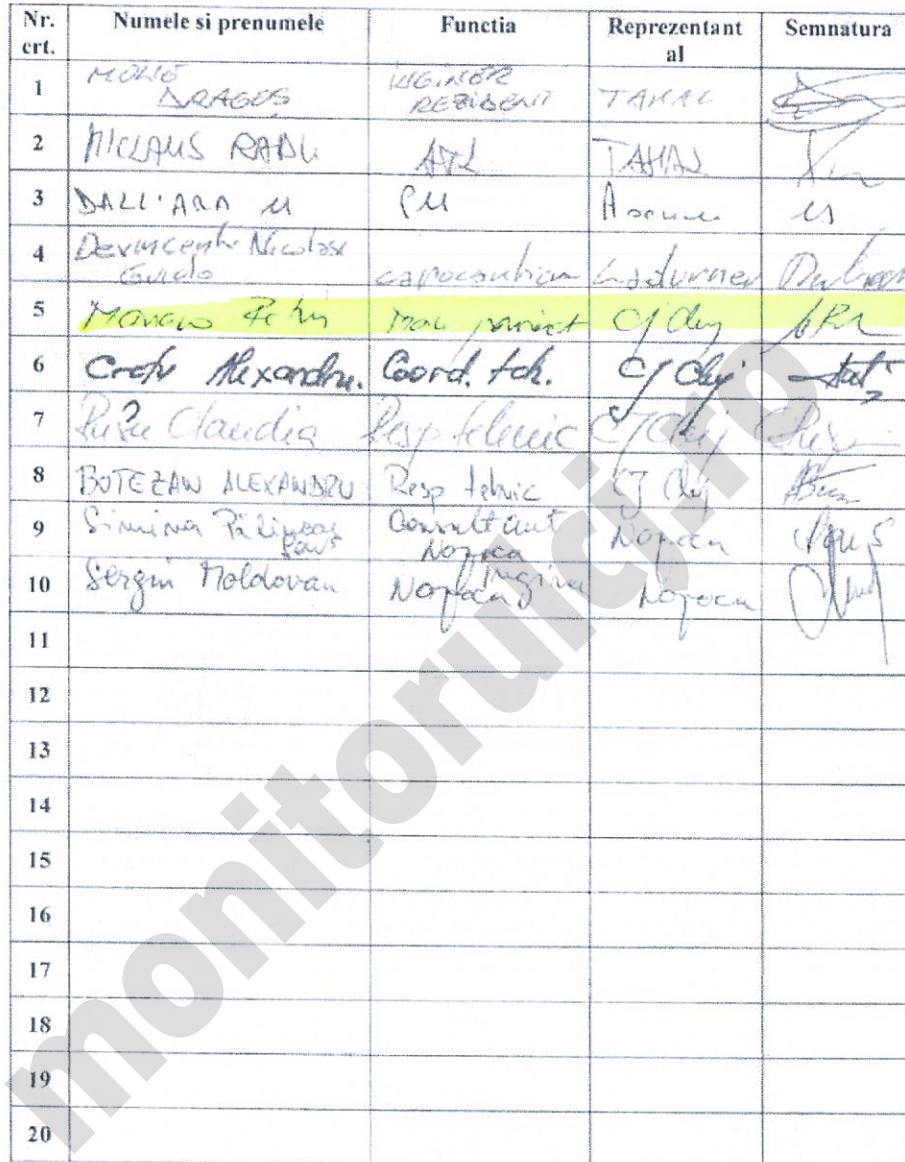 Nr. crt. Numele si prenumele Functia Reprezentant al Semnatura
1 DRAGOS INGINER REZIDENT TAHAL
2 MICLAUS RADU ATL TAHAL
3 DALL'ARA M PM
4 Devincenti Nicolas Guido Ladurner
5 Petru proiect CJ Cluj
6 Alexandru. Coord. teh. CJ Cluj
7 Claudia Resp tehnic CJ Cluj
8 BOTEZAN ALEXANDRU Resp tehnic CJ Cluj
9 Simina Consultant Napoca Napoca
10 Sergiu Moldovan Napoca Napoca
11
12
13
14
15
16
17
18
19
20
monitorulcj.ro